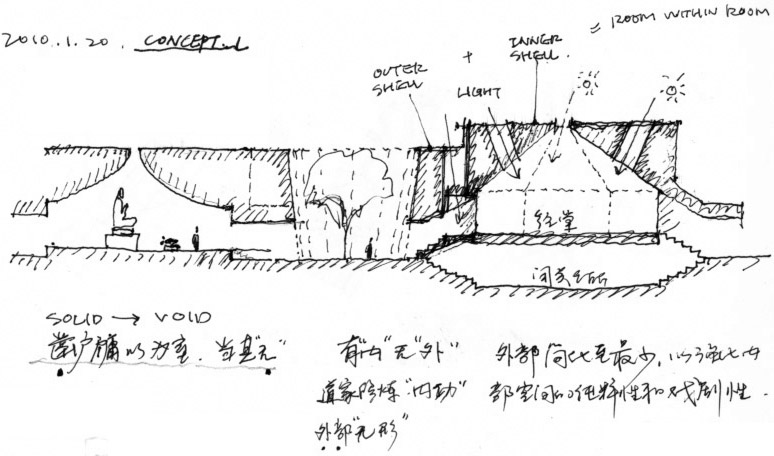 2010.1.20. CONCEPT.1
OUTER SHELL + LIGHT + INNER SHELL = ROOM WITHIN ROOM
经堂
SOLID → VOID
凿户牖以为室,当其"无"
有"内"无"外"
道家修炼"内功"
外部"无形"
外部简化至最少,以强化内
部空间的纯粹性和戏剧性.